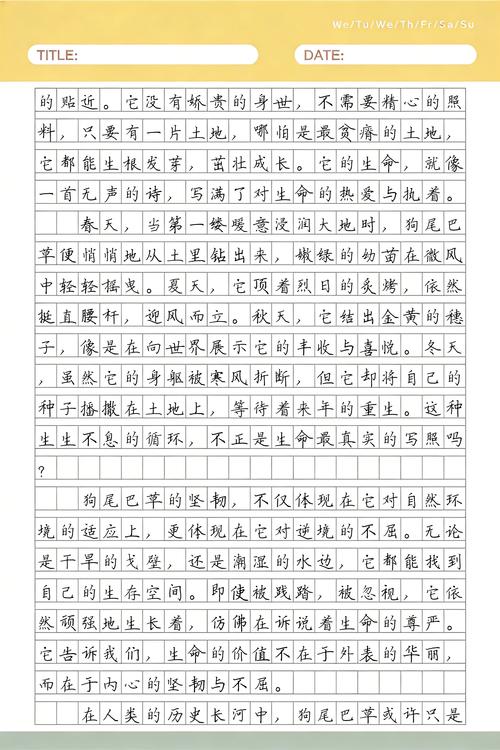 We/Tu/We/Th/Fr/Sa/Su
TITLE:
DATE:
的贴近。它没有娇贵的身世，不需要精心的照
料，只要有一片土地，哪怕是最贫瘠的土地，
它都能生根发芽，茁壮成长。它的生命，就像
一首无声的诗，写满了对生命的热爱与执着。
春天，当第一缕暖意浸润大地时，狗尾巴
草便悄悄地从土里钻出来，嫩绿的幼苗在微风
中轻轻摇曳。夏天，它顶着烈日的炙烤，依然
挺直腰杆，迎风而立。秋天，它结出金黄的穗
子，像是在向世界展示它的丰收与喜悦。冬天
，虽然它的身躯被寒风折断，但它却将自己的
种子播撒在土地上，等待着来年的重生。这种
生生不息的循环，不正是生命最真实的写照吗
？
狗尾巴草的坚韧，不仅体现在它对自然环
境的适应上，更体现在它对逆境的不屈。无论
是干旱的戈壁，还是潮湿的水边，它都能找到
自己的生存空间。即使被践踏，被忽视，它依
然顽强地生长着，仿佛在诉说着生命的尊严。
它告诉我们，生命的价值不在于外表的华丽，
而在于内心的坚韧与不屈。
在人类的历史长河中，狗尾巴草或许只是